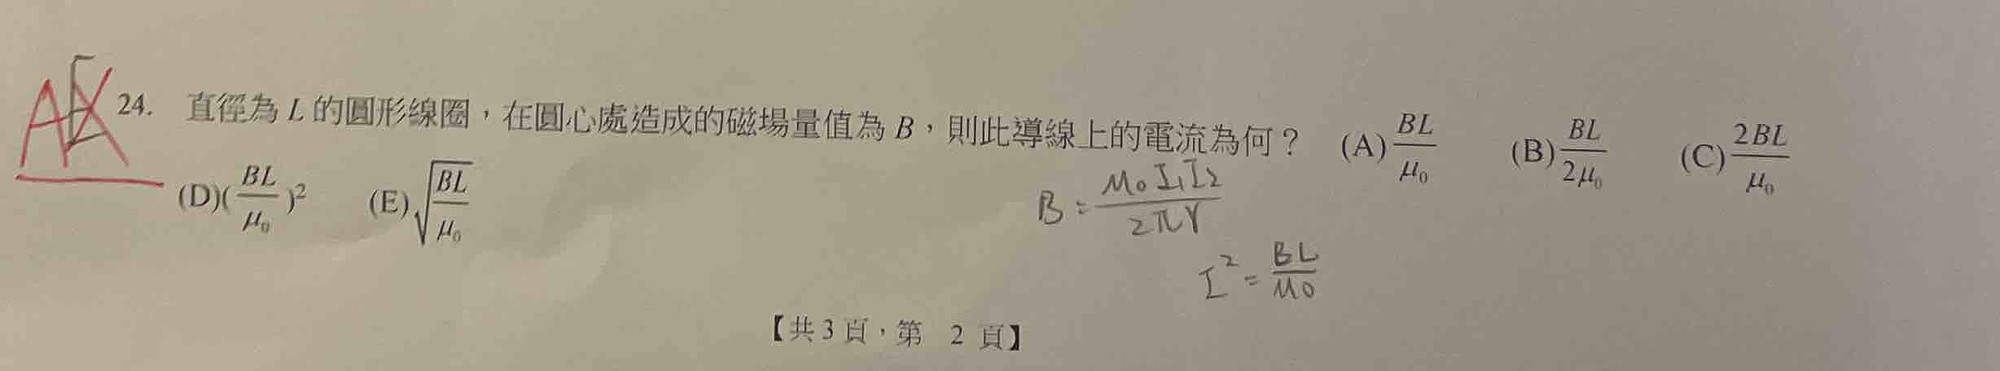 AE 24. 直徑為 L 的圓形線圈，在圓心處造成的磁場量值為 B，則此導線上的電流為何？ (A) BL/μ₀ (B) BL/2μ₀ (C) 2BL/μ₀
(D)(BL/μ₀)² (E) √(BL/μ₀)
B = μ₀I₁I₂/2πr
I² = BL/μ₀
【共 3 頁，第 2 頁】